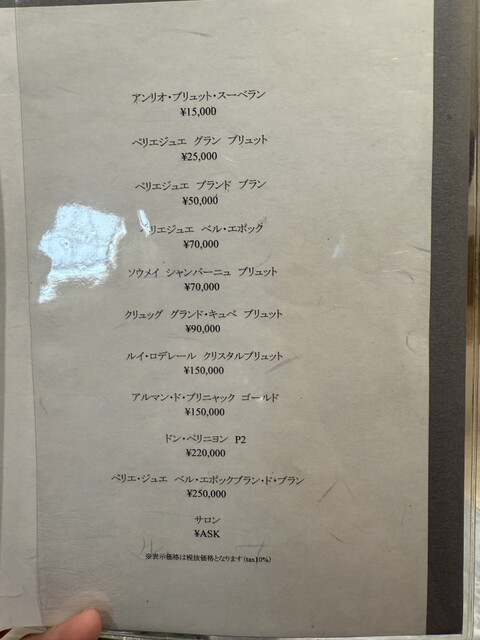 アンリオ・ブリュット・スーベラン
¥15,000
ペリエジュエ グラン ブリュット
¥25,000
ペリエジュエ ブランド ブラン
¥50,000
ペリエジュエ ベル・エポック
¥70,000
ソウメイ シャンパーニュ ブリュット
¥70,000
クリュッグ グランド・キュベ ブリュット
¥90,000
ルイ・ロデレール クリスタルブリュット
¥150,000
アルマン・ド・ブリニャック ゴールド
¥150,000
ドン・ペリニヨン P2
¥220,000
ペリエ・ジュエ ベル・エポックブラン・ド・ブラン
¥250,000
サロン
¥ASK
※表示価格は税抜価格となります(tax10%)